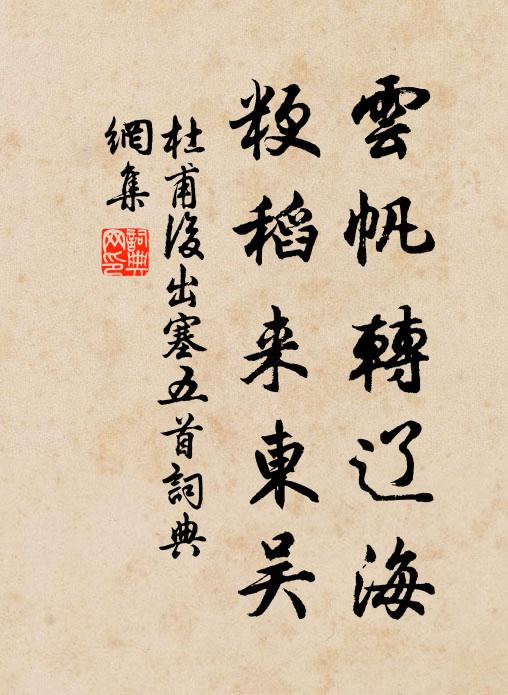 雲帆轉辽海
粳稻来東吴
杜甫後出塞五首詞典
網集
詞典
网印